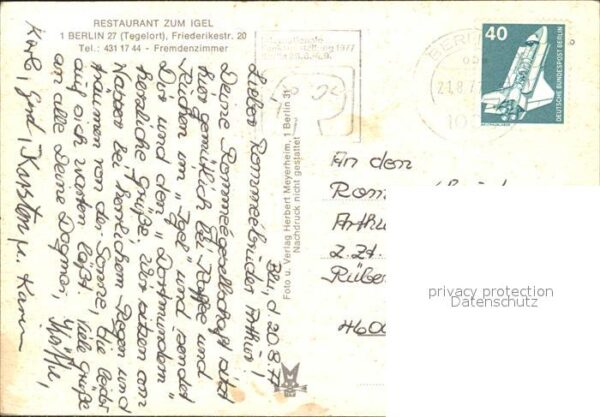 RESTAURANT ZUM IGEL
1 BERLIN 27 (Tegelort), Friederikestr. 20
Tel.: 431 17 44 - Fremdenzimmer
Internationale
Funkausstellung 1977
Berlin 26.8.-4.9.
BERLIN
21.8.7
40
DEUTSCHE BUNDESPOST BERLIN
Bln, d. 20.8.77
Lieber Rommeebruder Arthur!
Deine Rommeegesellschaft sitzt
hier gemütlich bei Kaffee und
Kuchen im „Igel" und sendet
Dir und den „Dortmundern"
herzliche Grüße. Wir sitzen am
Wasser bei herrlichem Regen und
träumen von der Sonne, die leider
auf sich warten läßt. Viele Grüße
an alle Deine Dagmar,
Karl, Gerd, Karsten u. Karin
Foto u. Verlag Herbert Meyerheim, 1 Berlin 31
Nachdruck nicht gestattet
An den
Arthur
z.Zt.
460
privacy protection
Datenschutz